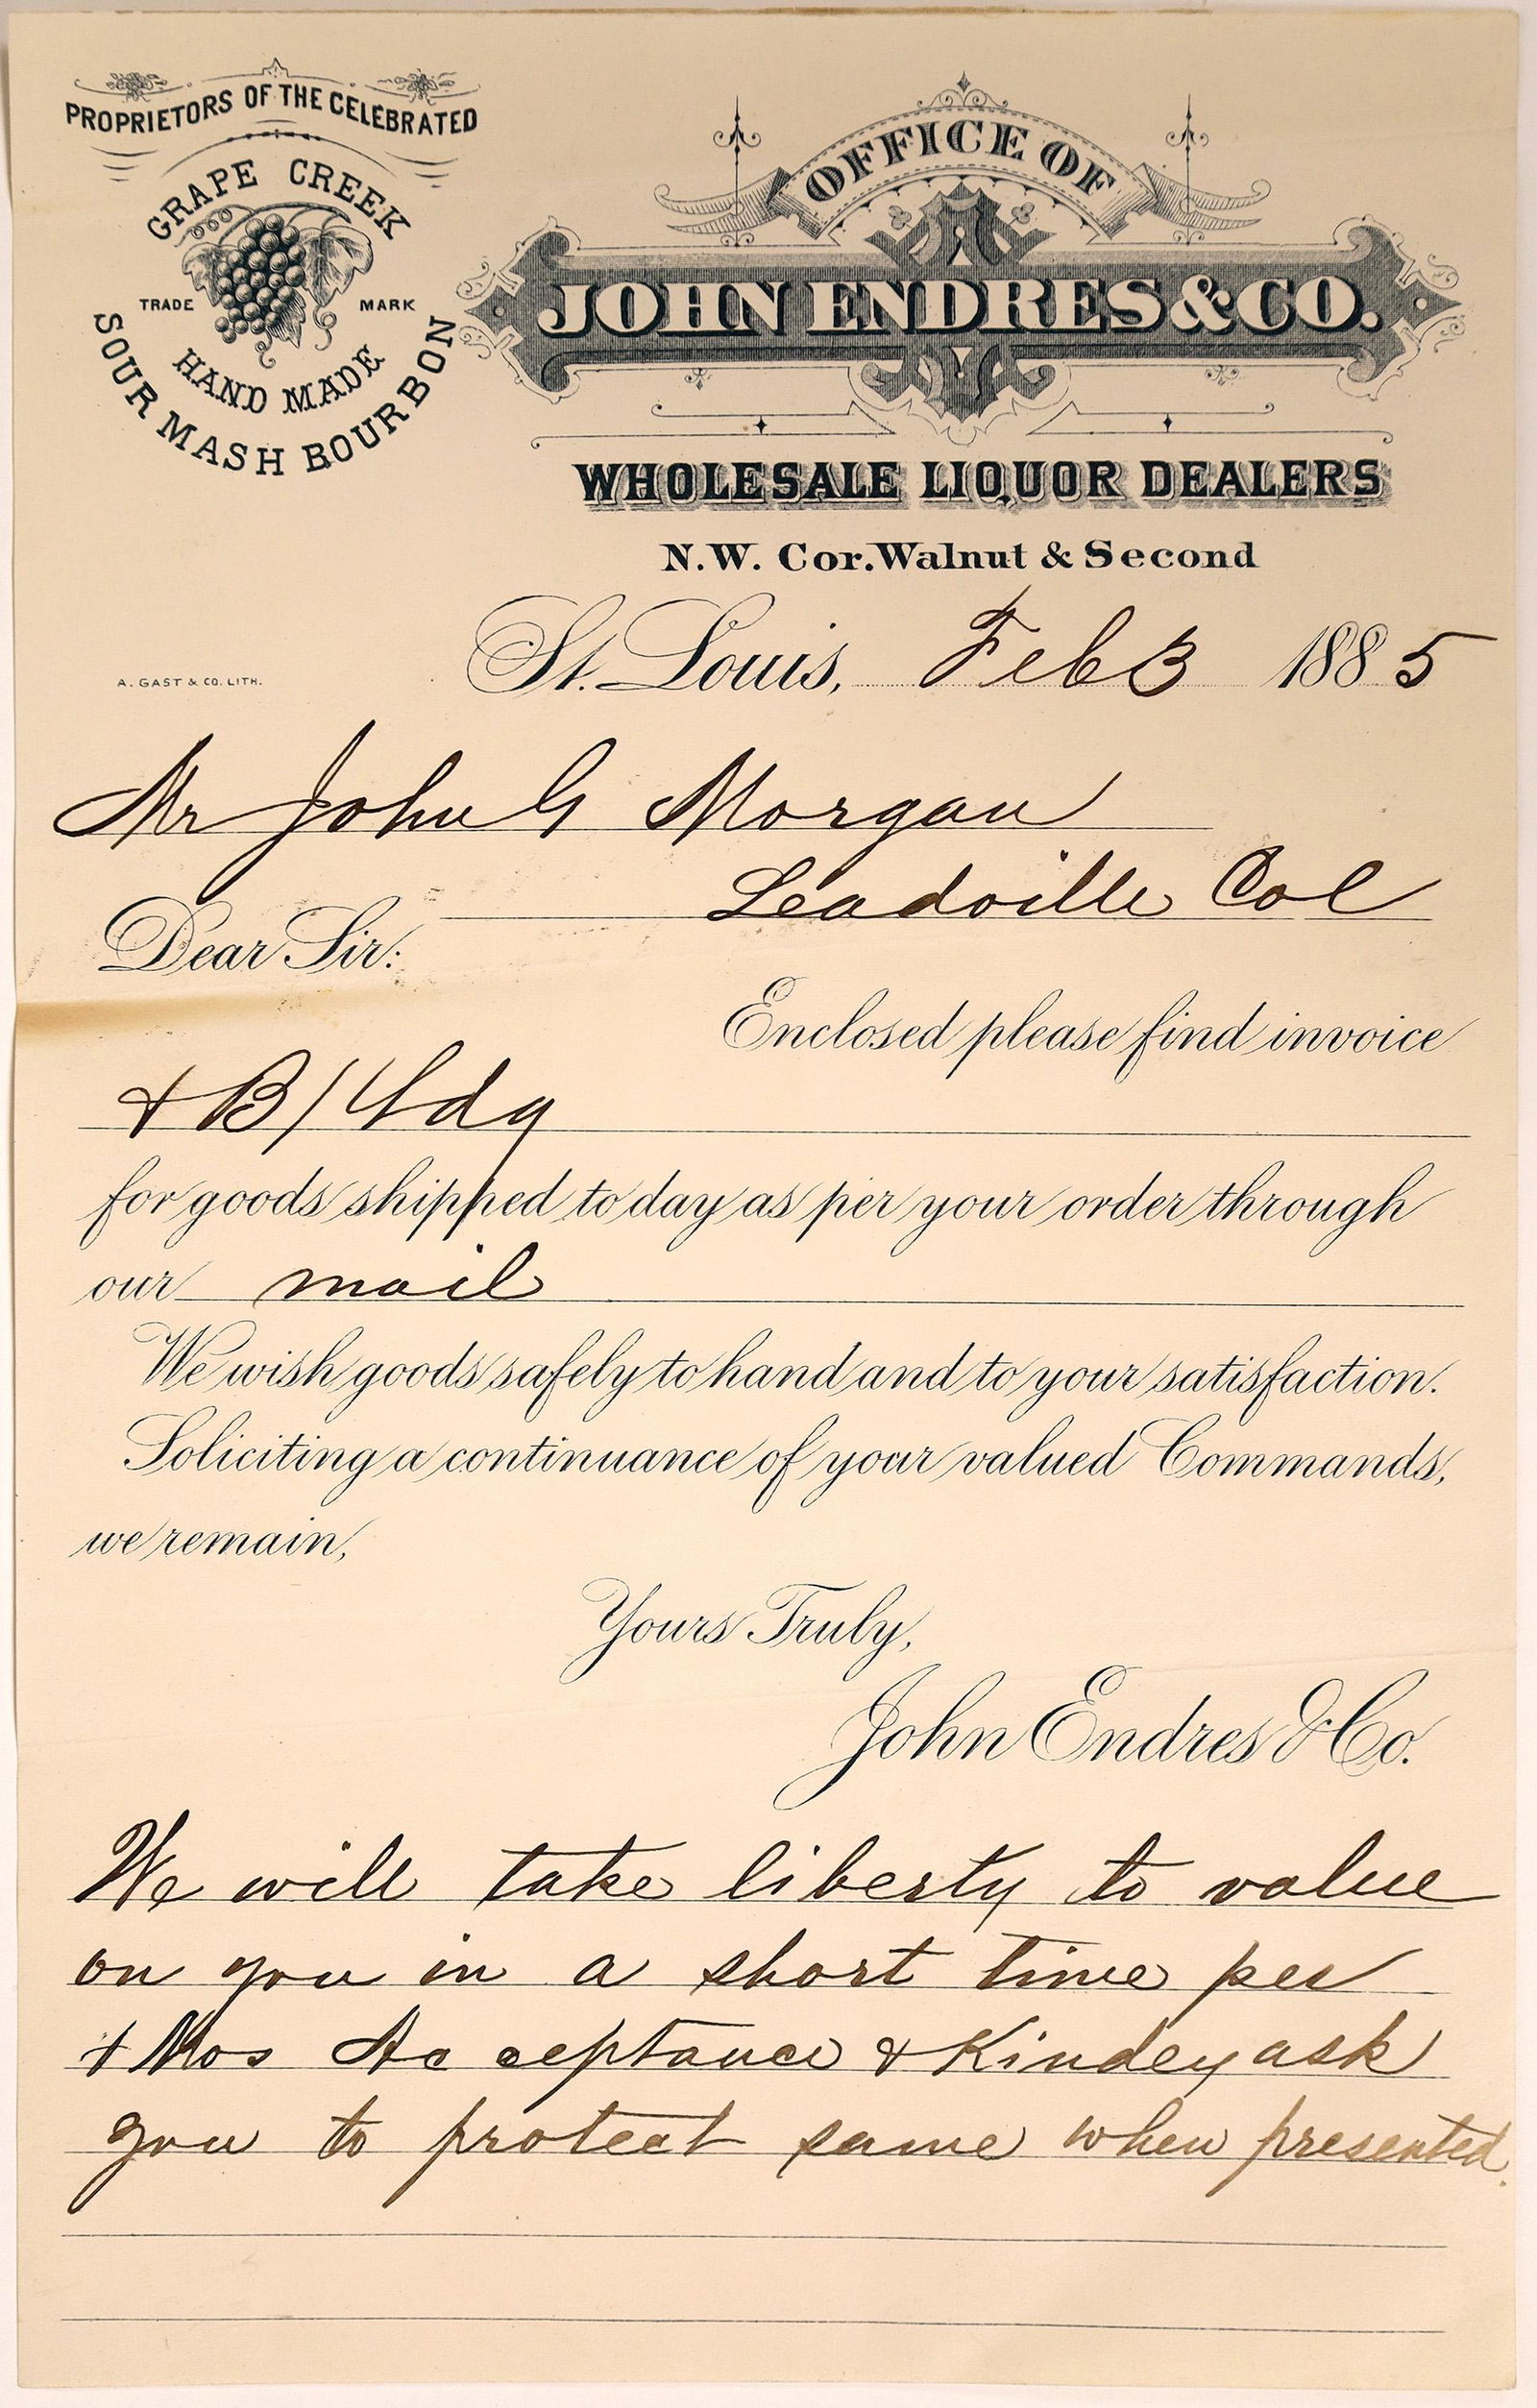 PROPRIETORS OF THE CELEBRATED
GRAPE CREEK
TRADE MARK
HAND MADE
SOUR MASH BOURBON
OFFICE OF
JOHN ENDRES & CO.
WHOLESALE LIQUOR DEALERS
N.W. Cor. Walnut & Second
A. GAST & CO. LITH.
St. Louis, Feb 3 1885
Mr John G Morgan
Leadville Col
Dear Sir:
Enclosed please find invoice
& B/Ldg
for goods shipped to day as per your order through
our mail
We wish goods safely to hand and to your satisfaction.
Soliciting a continuance of your valued Commands,
we remain,
Yours Truly,
John Endres & Co.
We will take liberty to value
on you in a short time per
Mos Acceptance & Kindey ask
you to protect same when presented.